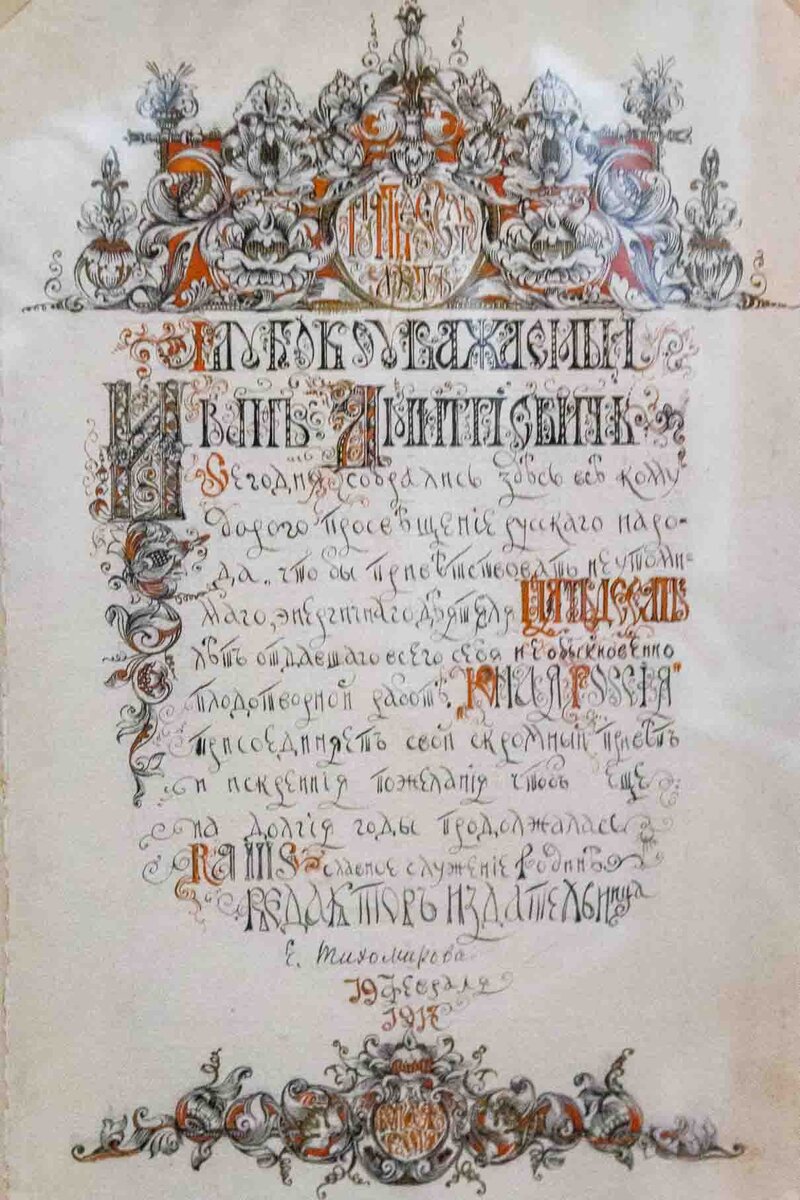 ПЯТЬДЕСЯТЪ
ЛѢТЪ
ГЛУБОКОУВАЖАЕМЫЙ
ИВАНЪ ДМИТРІЕВИЧЪ
Сегодня собрались здѣсь всѣ кому
дорого просвѣщеніе русскаго наро-
да, что бы привѣтствовать неутоми-
маго, энергичнаго дѣятеля ПЯТЬДЕСЯТЬ
лѣтъ отдавшаго всего себя необыкновенно
плодотворной работѣ. „ЮНАЯ РОССІЯ"
присоединяетъ свой скромный привѣтъ
и искреннія пожеланія чтобъ еще
на долгія годы продолжалась
ВАШЕ славное служеніе Родинѣ
РЕДАКТОРЪ ИЗДАТЕЛЬНИЦА
Е. Тихомирова
19 февраля
1917
ЮНАЯ
РОССІЯ